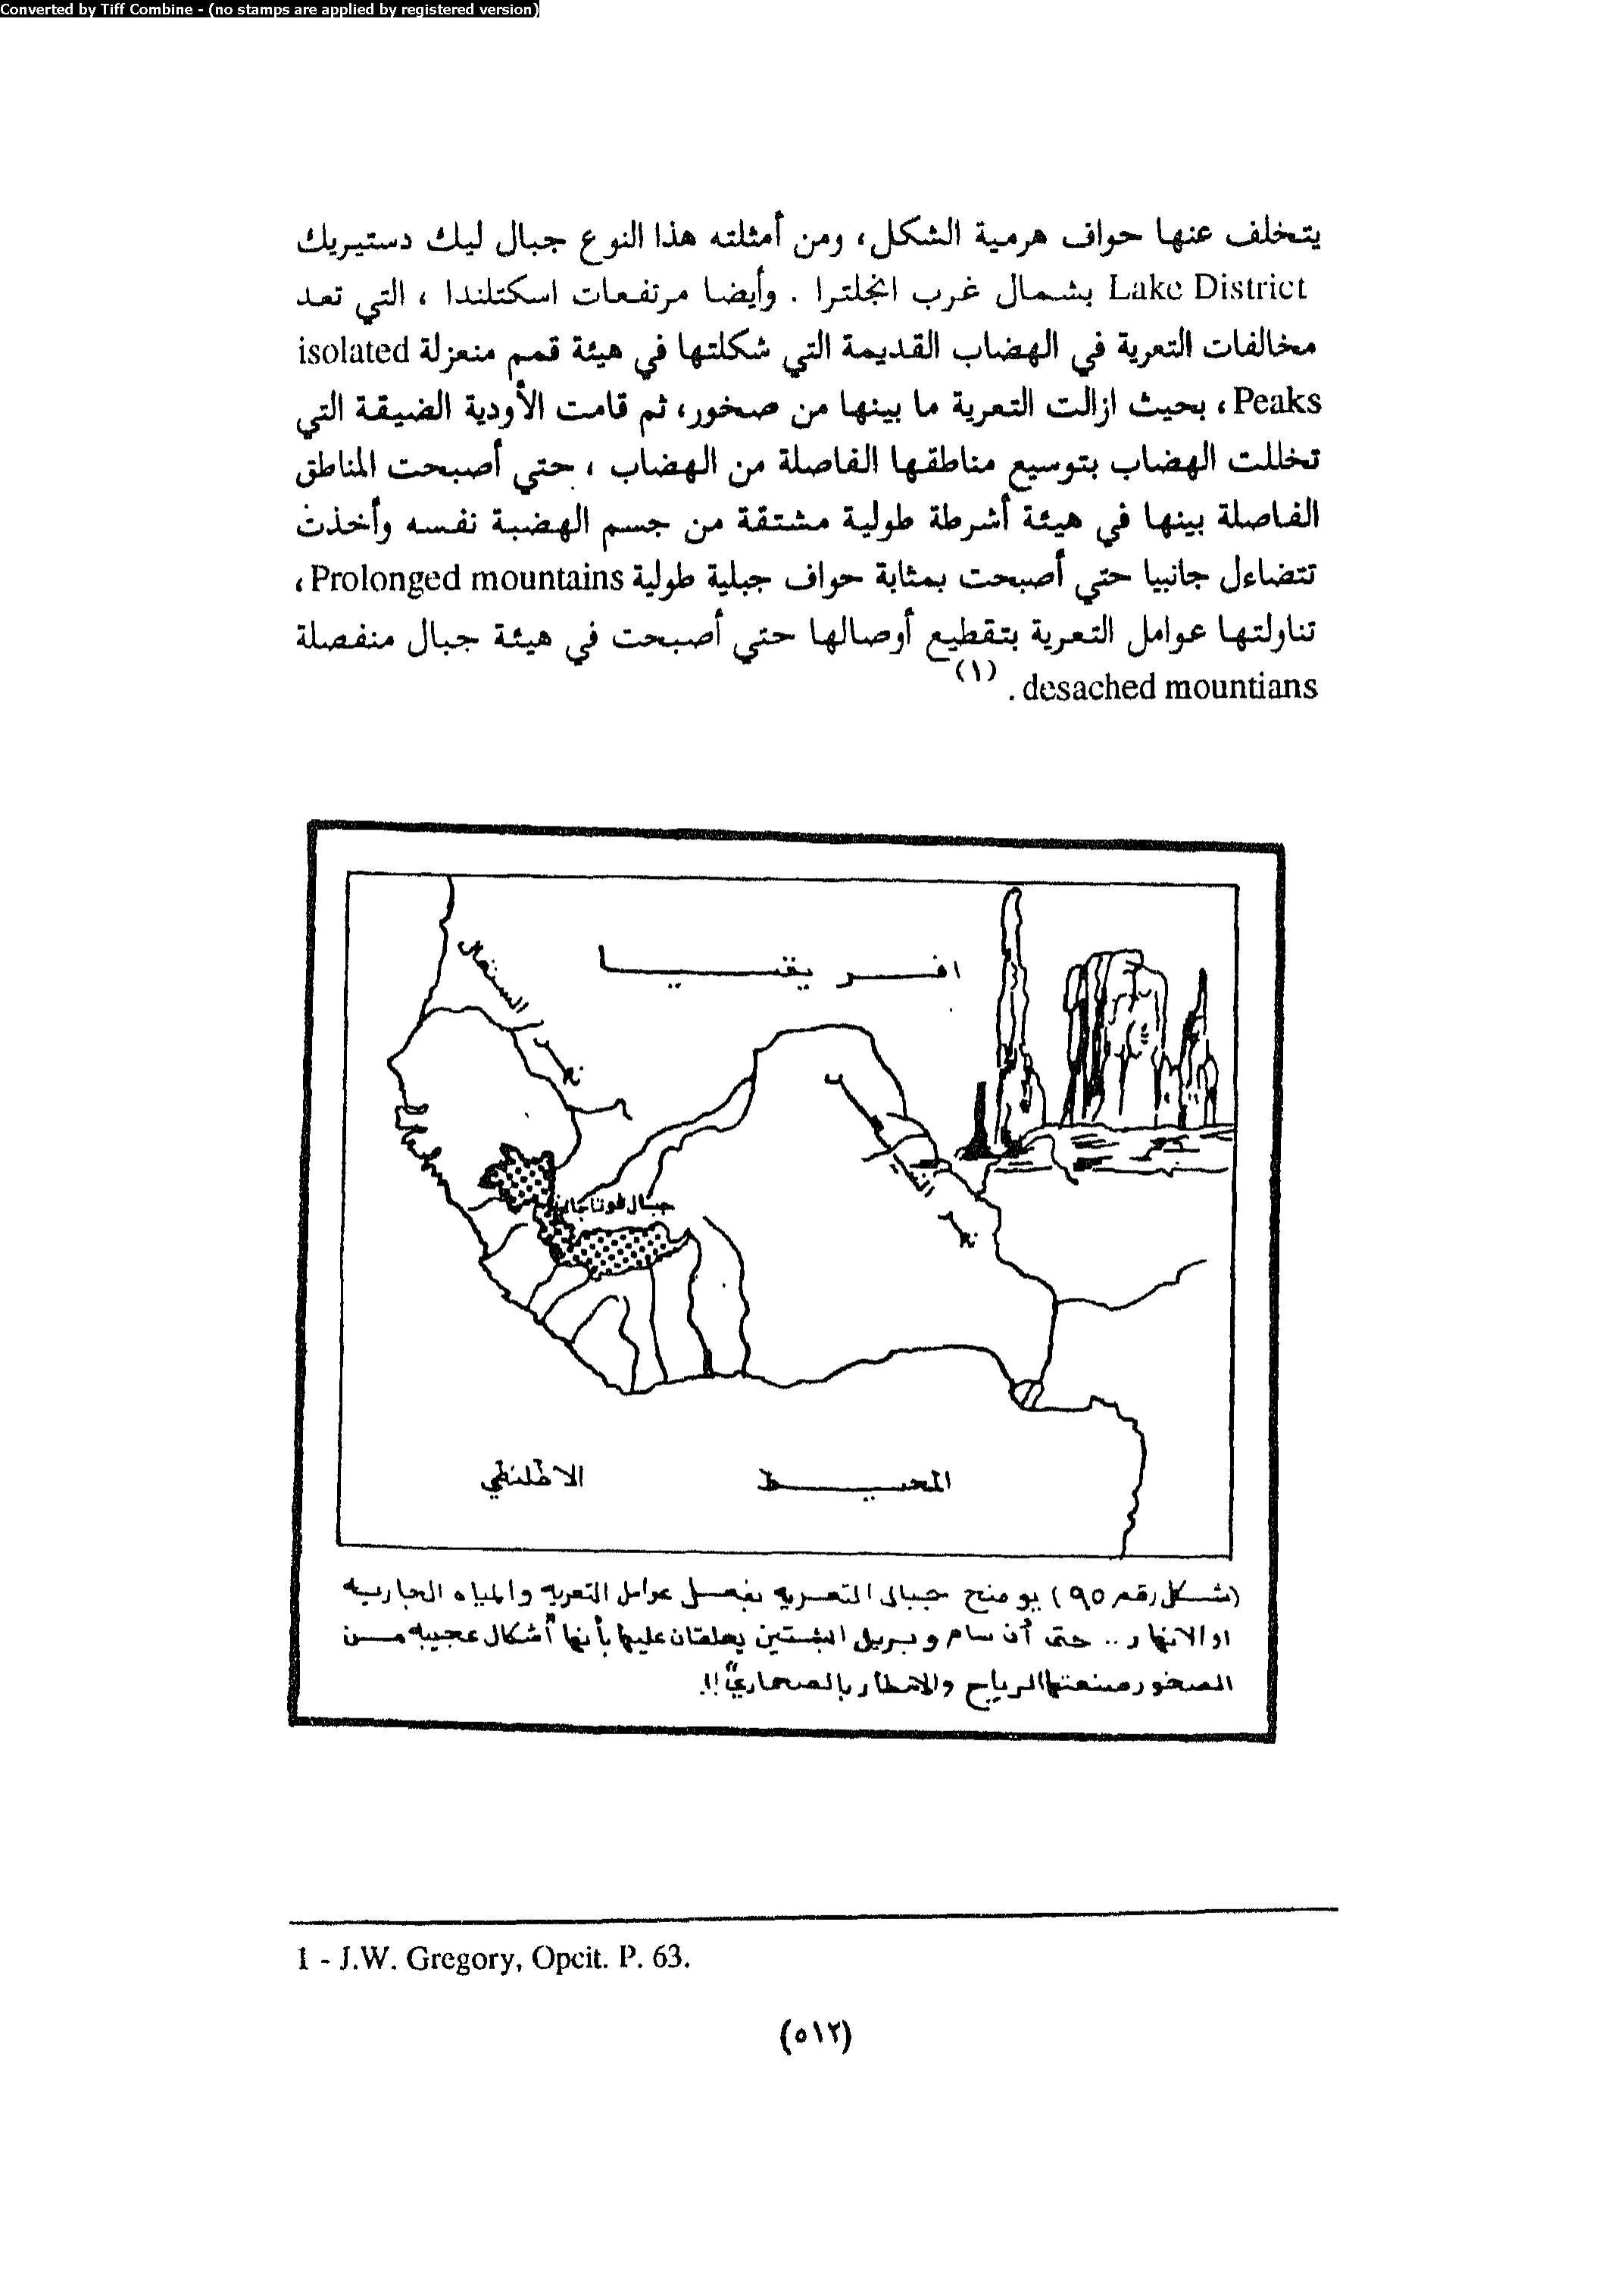 Converted by Tiff Combine - (no stamps are applied by registered version)
يتخلف عنها حواف هرمية الشكل، ومن أمثلته هذا النوع جبال ليك دستيريك
Lake District بشمال غرب انجلترا . وأيضا مرتفعات اسكتلندا ، التي تعد
مخالفات التعرية في الهضاب القديمة التي شكلتها في هيئة قمم منعزلة isolated
Peaks ، بحيث ازالت التعرية ما بينها من صخور، ثم قامت الأودية الضيقة التي
تخللت الهضاب بتوسيع مناطقها الفاصلة من الهضاب ، حتي أصبحت المناطق
الفاصلة بينها في هيئة أشرطة طولية مشتقة من جسم الهضبة نفسه وأخذت
تتضاءل جانبيا حتي أصبحت بمثابة حواف جبلية طولية Prolonged mountains ،
تناولتها عوامل التعرية بتقطيع أوصالها حتي أصبحت في هيئة جبال منفصلة
desached mountians . (١)
افريقيا
نهر السنغال
جبال فوتاجالون
نهر النيجر
المحيط الاطلنطي
(شكل رقم ٩٥) يوضح جبال التعريه بفعل عوامل التعريه والمياه الجاريه
او الانهار .. حتى أن سام و بيريل ابشتين يعلقان عليها بأنها "أشكال عجيبه من
الصخور صنعتها الرياح والامطار بالصحاري" !!.
1 - J.W. Gregory, Opcit. P. 63.
(٥١٢)